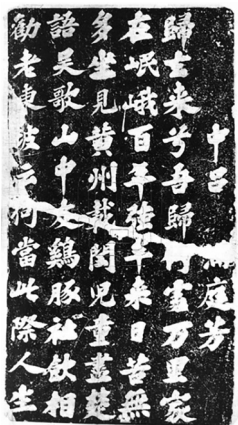 中呂 滿庭芳
歸去来兮吾歸何處万里家
在岷峨百年強半来日苦無
多坐見黄州載閏児童盡楚
語吴歌山中友鷄豚社飲相
勸老東坡云何當此際人生